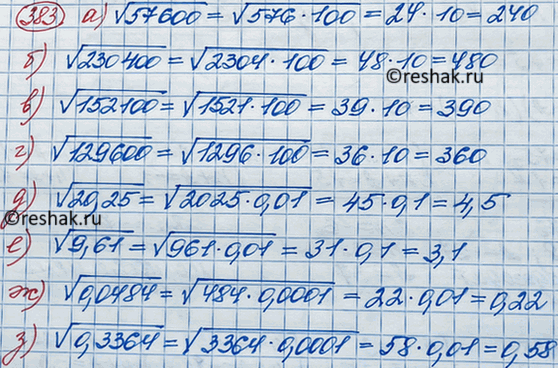 383 а) √57600 = √576·100 = 24·10 = 240
б) √230400 = √2304·100 = 48·10 = 480
©reshak.ru
в) √152100 = √1521·100 = 39·10 = 390
г) √129600 = √1296·100 = 36·10 = 360
д) √20,25 = √2025·0,01 = 45·0,1 = 4,5
©reshak.ru
е) √9,61 = √961·0,01 = 31·0,1 = 3,1
ж) √0,0484 = √484·0,0001 = 22·0,01 = 0,22
з) √0,3364 = √3364·0,0001 = 58·0,01 = 0,58